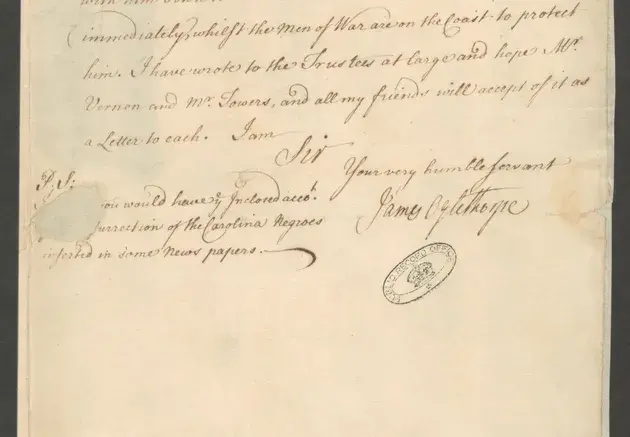 with him
immediately, whilst the Men of War are on the Coast to protect
him. I have wrote to the Trustees at large and hope Mr.
Vernon and Mr. Towers, and all my friends will accept of it as
a Letter to each. I am
Sir
Your very humble Servant
James Oglethorpe
P. S:
you would have ye Inclosed acct.
urrection of the Carolina Negroes
inserted in some News papers.
PUBLIC RECORD OFFICE